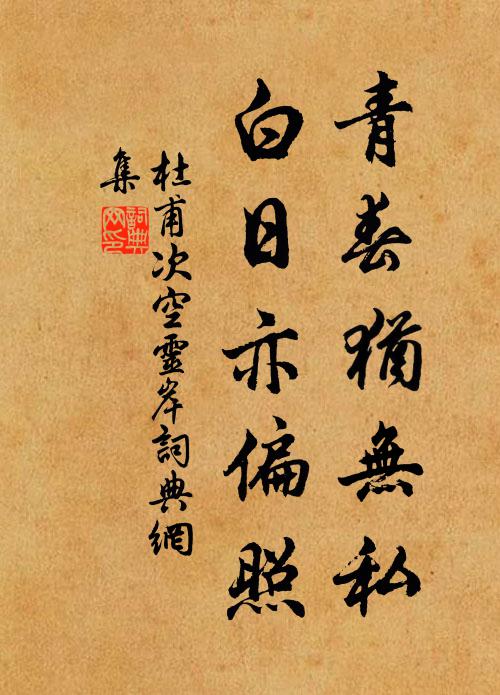 青春猶無私
白日亦偏照
杜甫次空靈岸詞典網
集
詞典網印